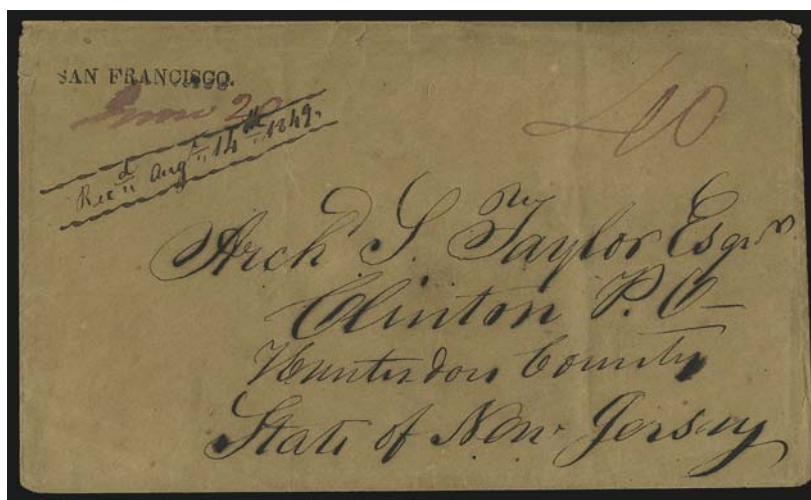 SAN FRANCISCO.
June 20
40
Rec'd Augt 14th 1849.
Archd S. Taylor Esqr
Clinton P. O
Hunterdon County
State of New Jersey